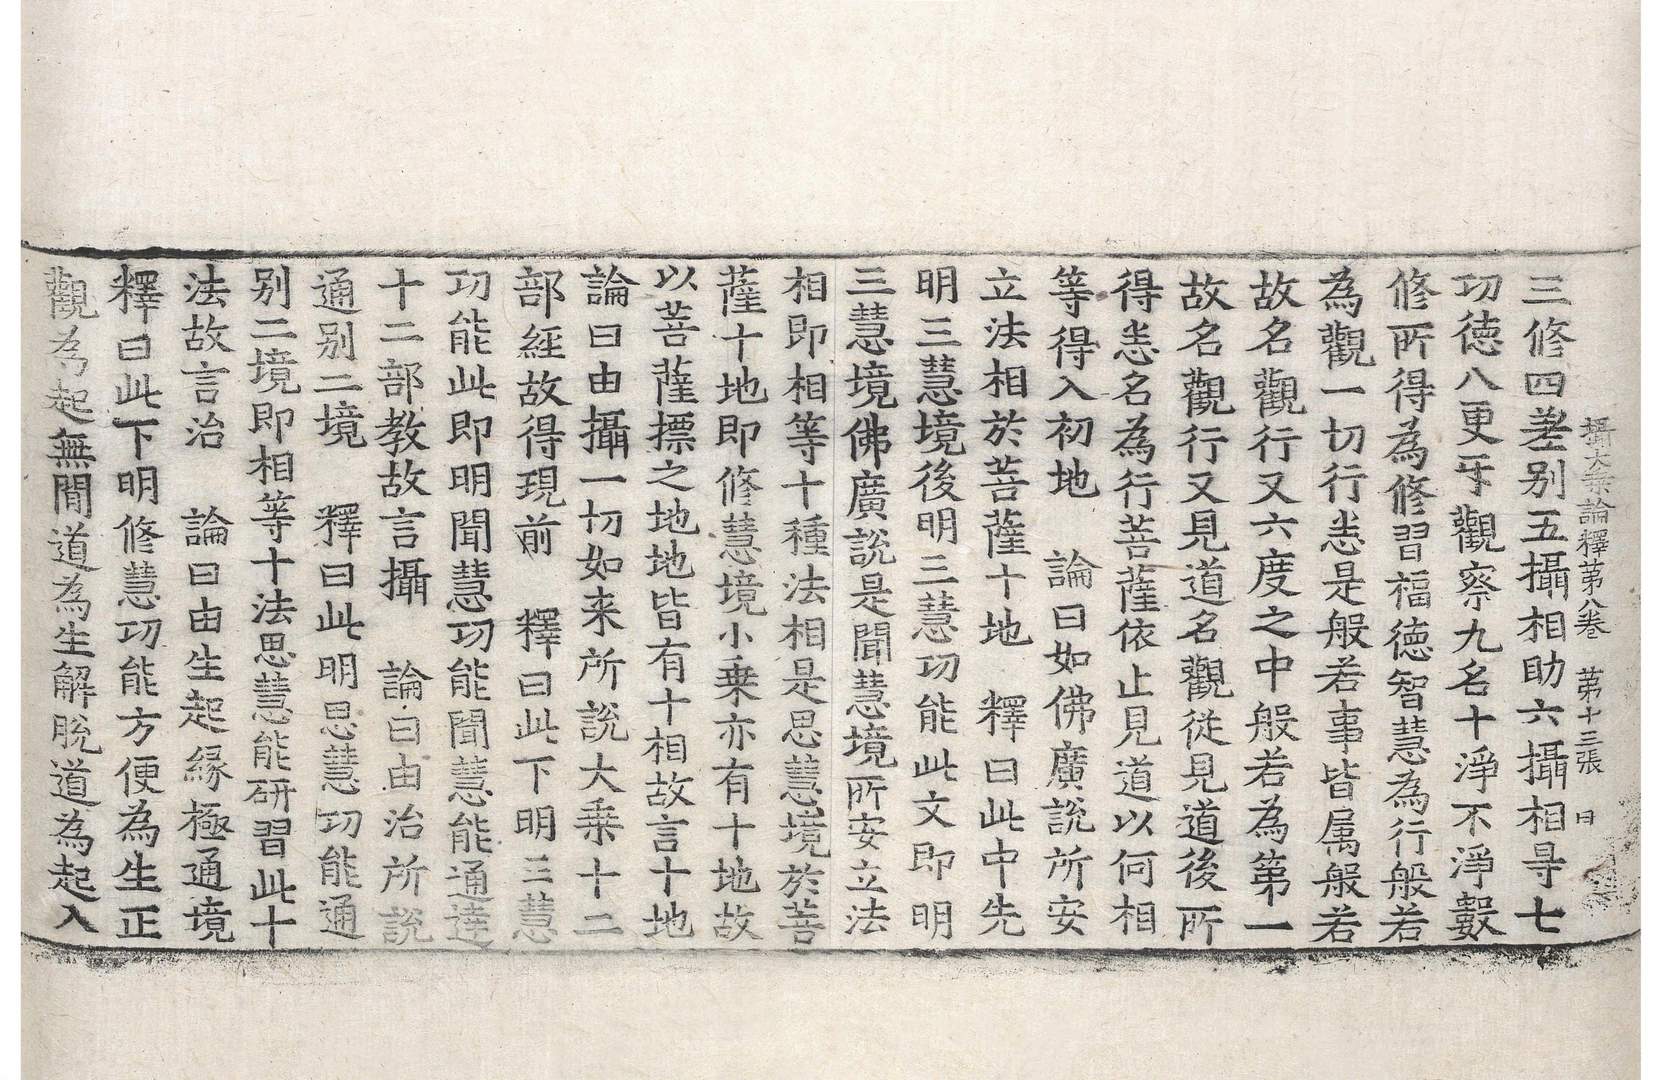 攝大乘論釋第八卷　第十三張　日
三修四差别五攝相助六攝相㝵七
功德八更牙觀察九名十淨不淨數
修所得為修習福德智慧為行般若
為觀一切行恙是般若事皆属般若
故名觀行又六度之中般若為第一
故名觀行又見道名觀從見道後所
得恙名為行菩薩依止見道以何相
等得入初地　論曰如佛廣說所安
立法相於菩薩十地　釋曰此中先
明三慧境後明三慧功能此文即明
三慧境佛廣說是聞慧境所安立法
相即相等十種法相是思慧境於菩
薩十地即修慧境小乗亦有十地故
以菩薩摽之地地皆有十相故言十地
論曰由攝一切如来所說大乗十二
部經故得現前　釋曰此下明三慧
功能此即明聞慧功能聞慧能通達
十二部教故言攝　論曰由治所說
通别二境　釋曰此明思慧功能通
别二境即相等十法思慧能研習此十
法故言治　論曰由生起縁極通境
釋曰此下明修慧功能方便為生正
觀為起無閒道為生解脫道為起入